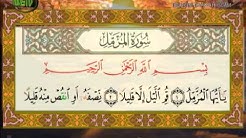 سُورَةُ الْمُزَّمِّلِ
بِسْمِ اللَّهِ الرَّحْمَٰنِ الرَّحِيمِ
يَا أَيُّهَا الْمُزَّمِّلُ ۝ قُمِ اللَّيْلَ إِلَّا قَلِيلًا ۝ نِصْفَهُ أَوِ انْقُصْ مِنْهُ قَلِيلًا